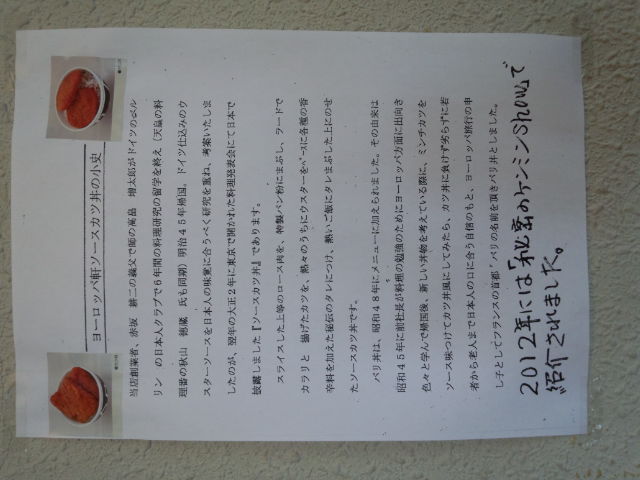 ヨーロッパ軒ソースカツ丼の小史
当店創業者、赤坂 耕二の義父で師の高畠 増太郎がドイツのベル
リン の日本人クラブで６年間の料理研究の留学を終え（天皇の料
理番の秋山 徳蔵 氏も同期）明治４５年帰国。ドイツ仕込みのウ
スターソースを日本人の味覚に合うべく研究を重ね、考案いたしま
したのが、翌年の大正２年に東京で開かれた料理発表会にて日本で
披露しました『ソースカツ丼』であります。
スライスした上等のロース肉を、特製パン粉にまぶし、ラードで
カラリと 揚げたカツを、熱々のうちにウスターをベースに各種の香
辛料を加えた秘伝のタレにつけ、熱いご飯にタレまぶした上にのせ
たソースカツ丼です。
パリ丼は、昭和４８年にメニューに加えられました。その由来は
昭和４５年に前社長が料理の勉強のためにヨーロッパ方面に出向き
色々と学んで帰国後、新しい丼物を考えている際に、ミンチカツを
ソース味つけてカツ丼風にしてみたら、カツ丼に負けず劣らずに若
者から老人まで日本人の口に合う自信のもと、ヨーロッパ旅行の申
し子としてフランスの首都・パリの名前を頂きパリ丼としました。
2012年には「秘密のケンミンShow」で
紹介されました。